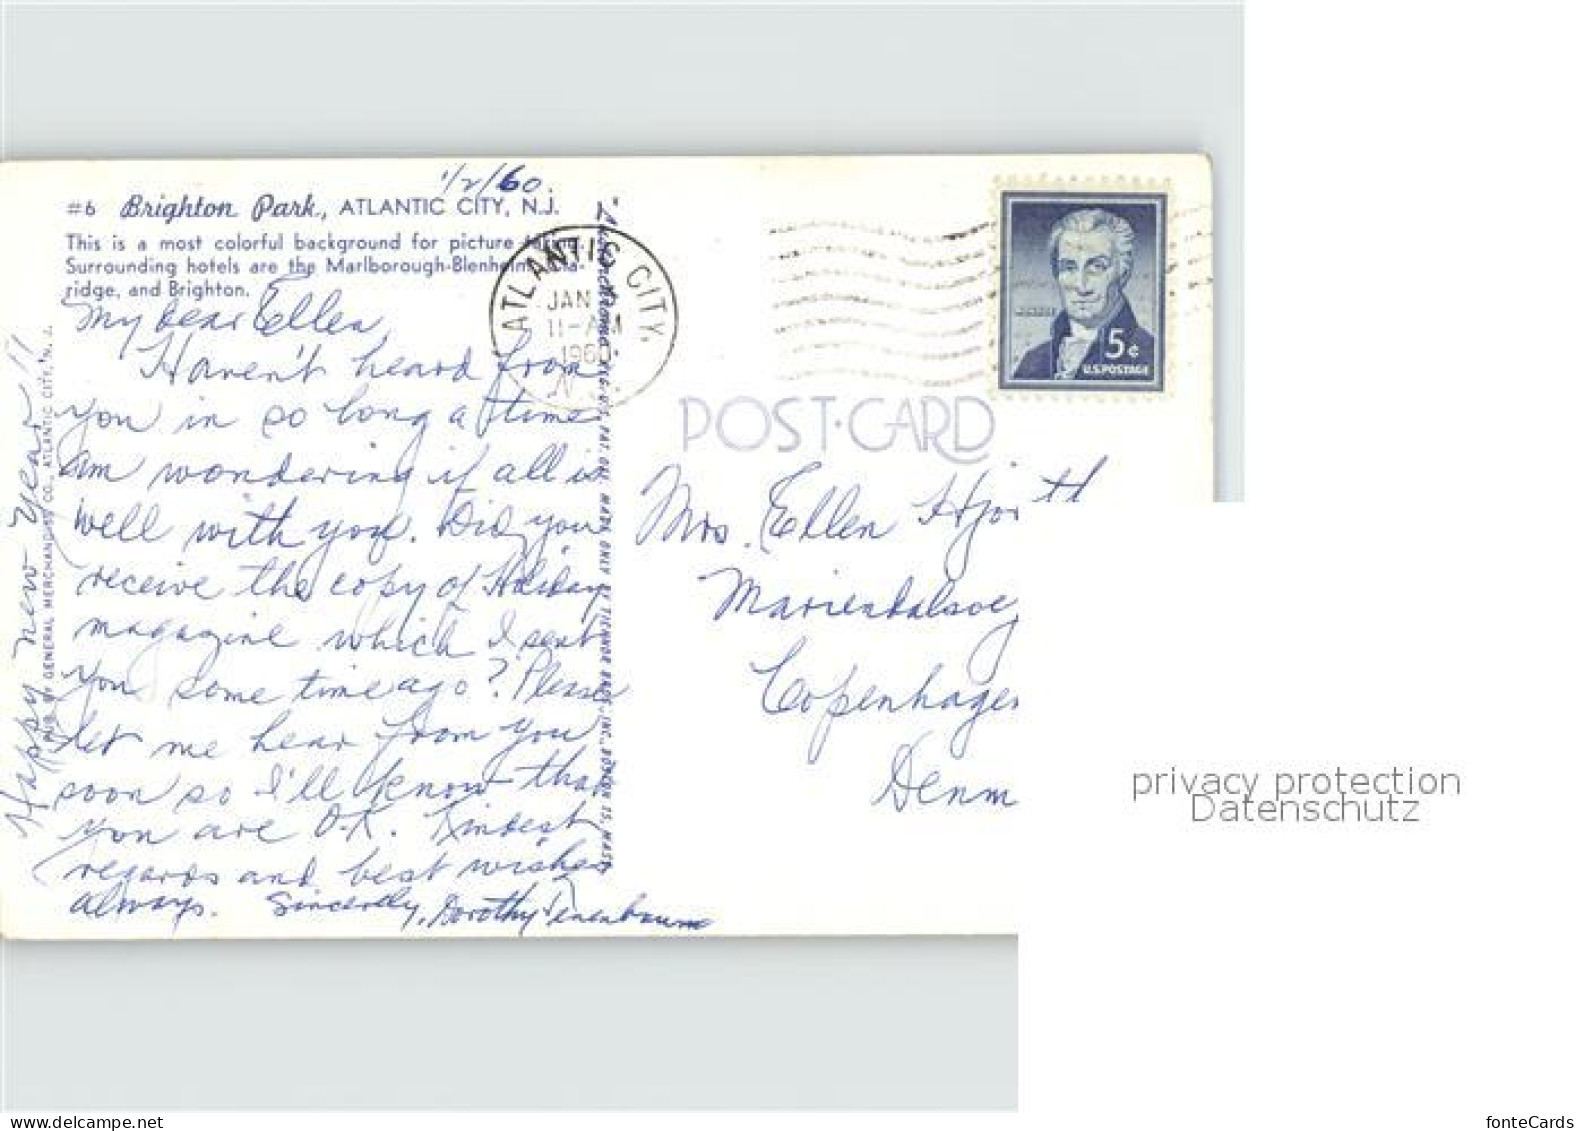 1/2/60.
#6 Brighton Park, ATLANTIC CITY, N.J.
This is a most colorful background for picture taking.
Surrounding hotels are the Marlborough-Blenheim, Cla-
ridge, and Brighton.
My dear Ellen,
Haven't heard from
you in so long a time
am wondering if all is
well with you. Did you
receive the copy of Holiday
magazine which I sent
you some time ago? Please
let me hear from you
soon so I'll know that
you are O.K. Kindest
regards and best wishes
always. Sincerely, Dorothy
Happy New Year!!
PUB. BY GENERAL MERCHANDISE CO., ATLANTIC CITY, N. J.
REG. U.S. PAT. OFF. MADE ONLY BY TICHNOR BROS., INC., BOSTON 15, MASS.
ATLANTIC CITY,
JAN
11-AM
1960
N
5¢
U.S. POSTAGE
POST-CARD
Mrs. Ellen Hjor th
Mariendalsve
Copenhagen
Denm
privacy protection
Datenschutz
fonteCards